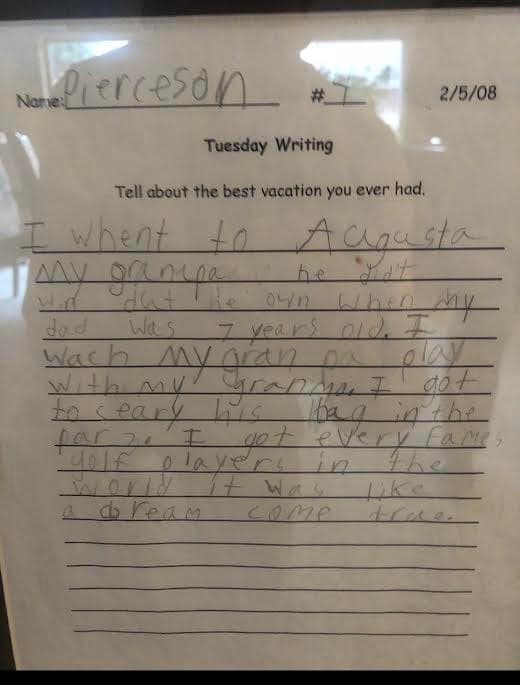 Name: Pierceson # 1 2/5/08
Tuesday Writing
Tell about the best vacation you ever had.
I whent to Augusta
My grandpa he did't
win but he own when My
dad was 7 years old. I
wach My gran pa play
with my granma. I got
to ceary his bag in the
par 3. I got every fames
golf players in the
world it was like
a dream come true.